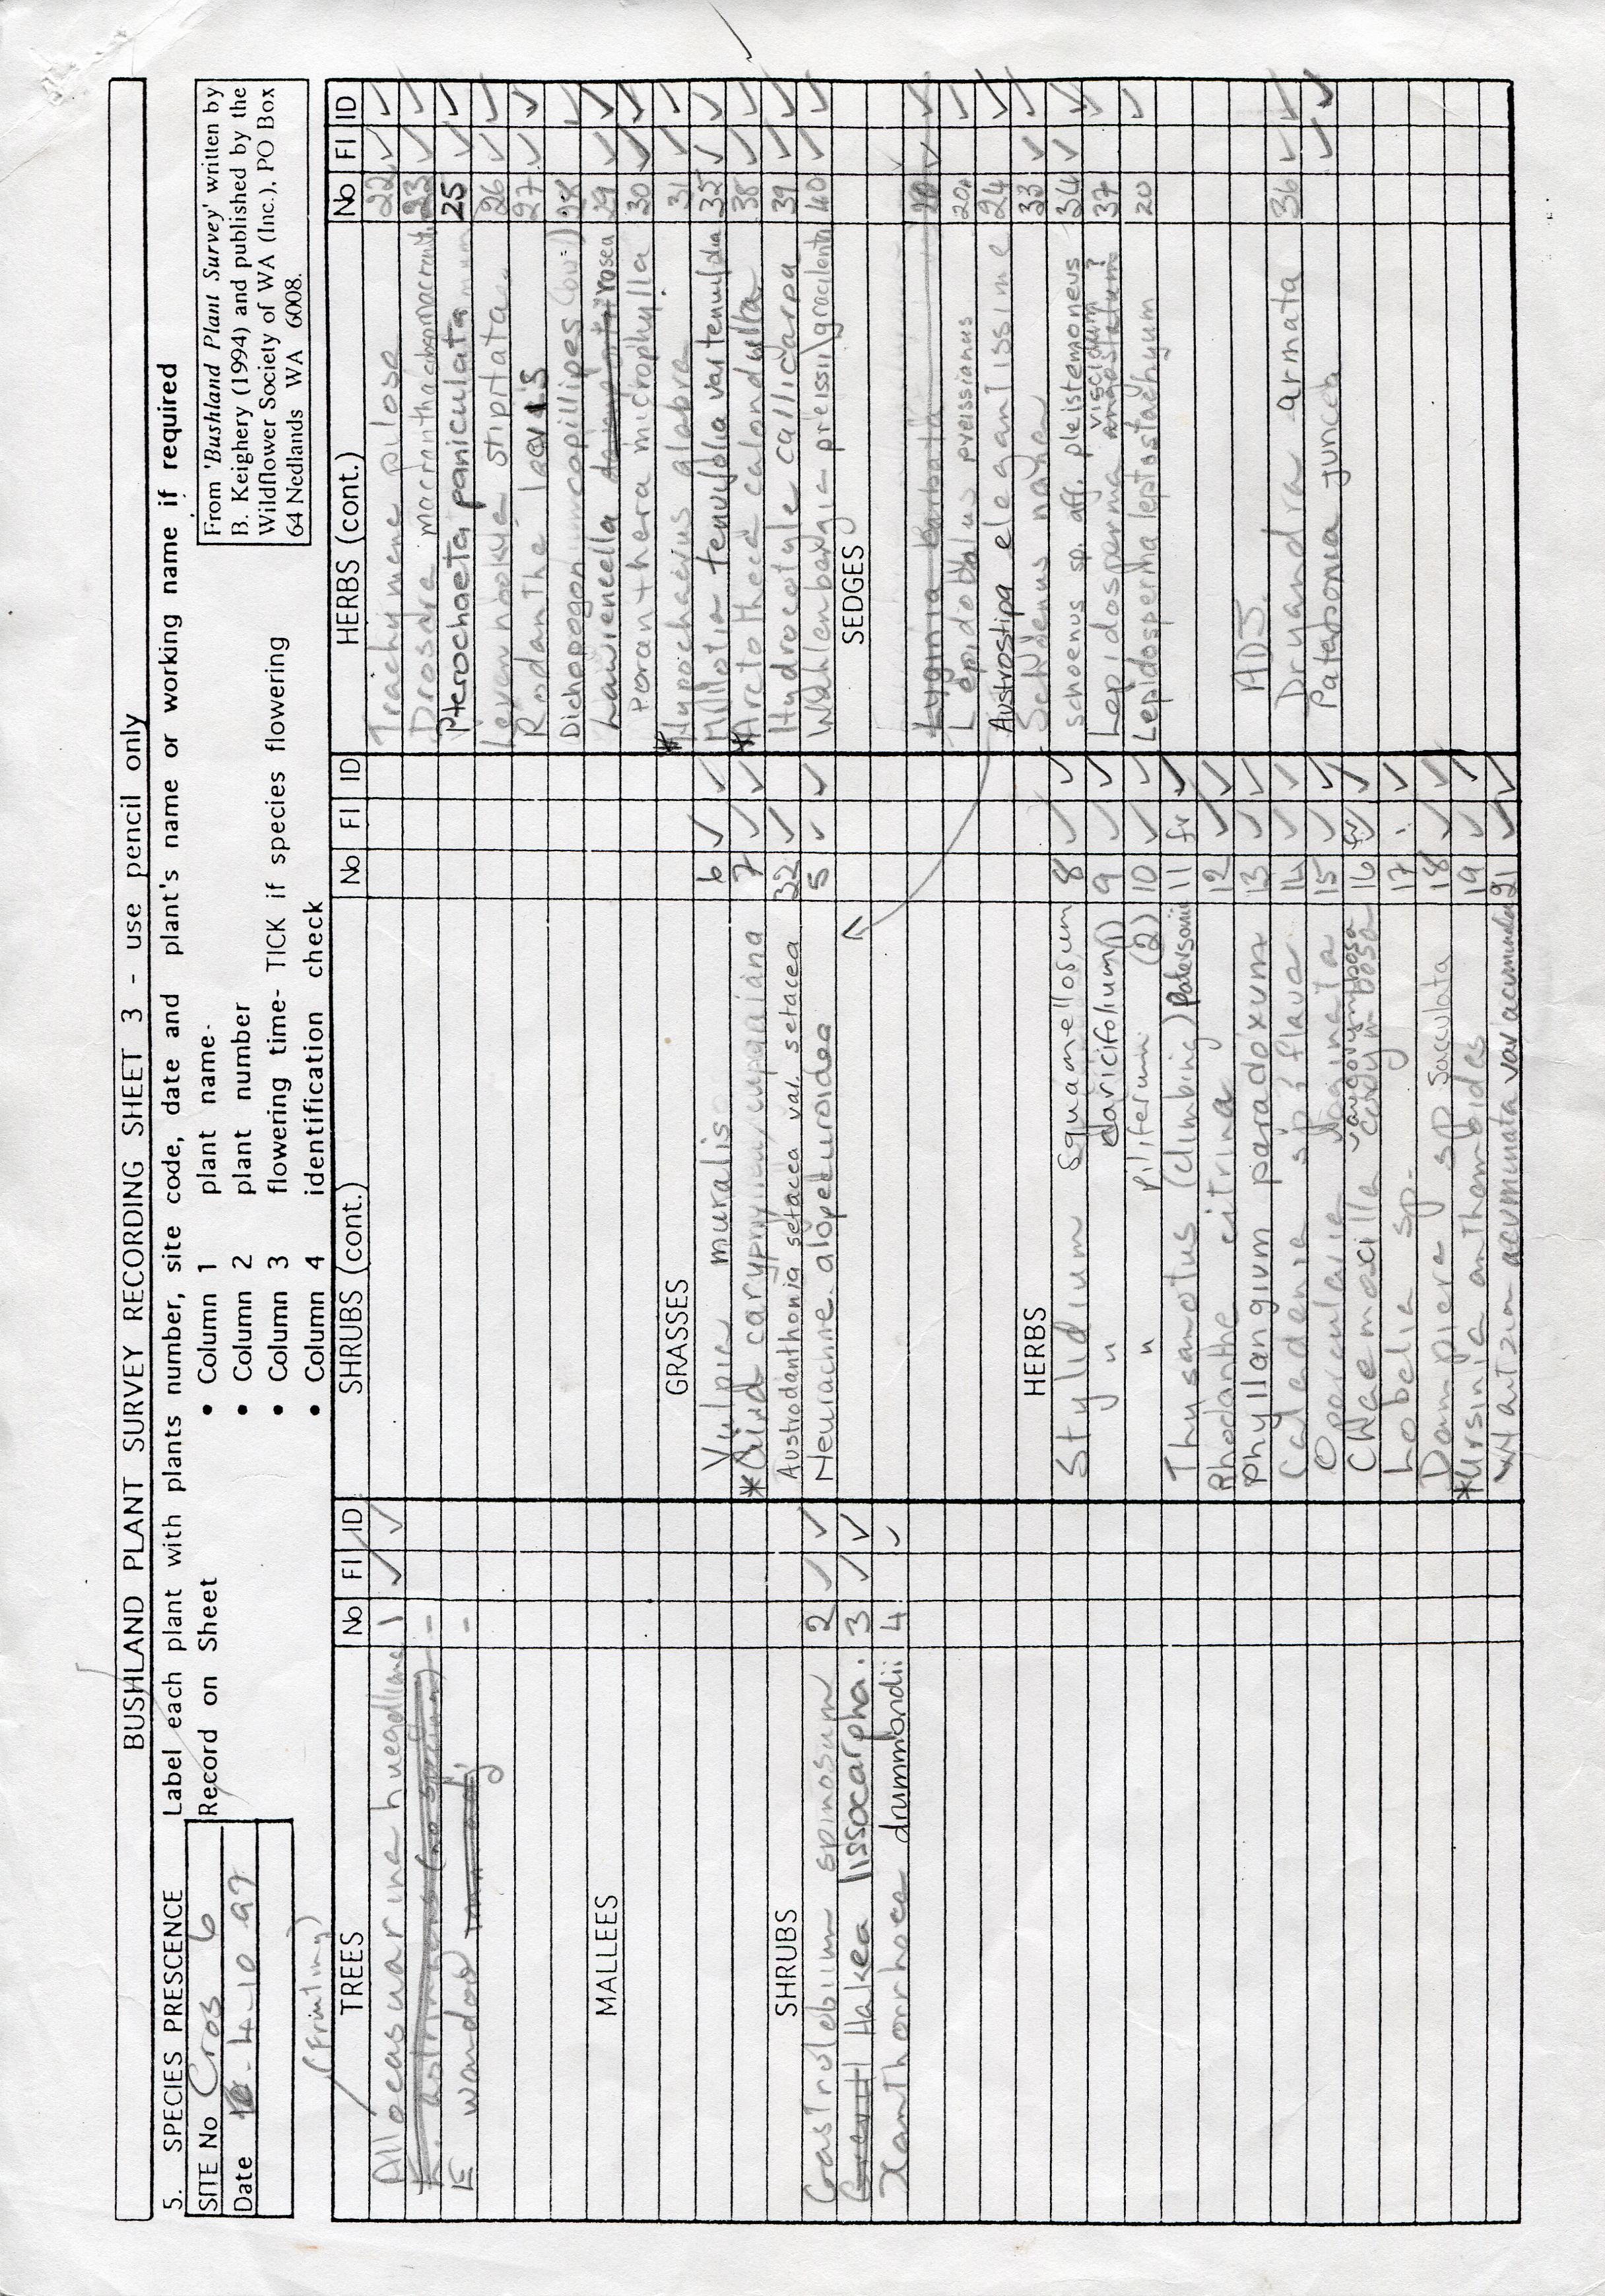 BUSHLAND PLANT SURVEY RECORDING SHEET 3 - use pencil only
5. SPECIES PRESCENCE
Label each plant with plants number, site code, date and plant's name or working name if required
SITE No Cros 6
Date 4.10.97
Record on Sheet
• Column 1 plant name-
• Column 2 plant number
• Column 3 flowering time- TICK if species flowering
• Column 4 identification check
From 'Bushland Plant Survey' written by
B. Keighery (1994) and published by the
Wildflower Society of WA (Inc.), PO Box
64 Nedlands WA 6008.
(Fruiting)
TREES No Fl ID
Allocasuarina huegeliana 1 ✓ ✓
E wandoo -
MALLEES
SHRUBS
Gastrolobium spinosum 2 ✓ ✓
Hakea lissocarpha. 3 ✓ ✓
Xanthorrhoea drummondii 4 ✓
SHRUBS (cont.) No Fl ID
GRASSES
Vulpia muralis 6 ✓ ✓
*Aira caryophyllea/cupaniana 7 ✓ ✓
Austrodanthonia setacea var. setacea 32 ✓
Neurachne alopecuroidea 5 ✓ ✓
HERBS
Stylidium squamellosum 8 ✓ ✓
" caricifolium (1) 9 ✓ ✓
" piliferum (2) 10 ✓ ✓
Thysanotus (climbing) patersonii 11 fr ✓
Rhodanthe citrina 12 ✓ ✓
Phyllangium paradoxum 13 ✓ ✓
Caladenia sp? flava 14 ✓ ✓
Opercularia vaginata 15 ✓ ✓
Chaemascilla corymbosa var corymbosa 16 fr ✓
Lobelia sp. 17 - ✓
Dampiera sp sacculata 18 ✓ ✓
*Ursinia anthemoides 19 ✓ ✓
Waitzia acuminata var acuminata 21 ✓ ✓
HERBS (cont.) No Fl ID
Trachymene pilosa 22 ✓ ✓
Drosera macrantha subsp macrantha 23 ✓ ✓
Pterochaeta paniculata 25 ✓ ✓
Levenhookia stipitata 26 ✓ ✓
Rodanthe laevis 27 ✓ ✓
Dichopogon capillipes 28 ✓
Lawrencella rosea 29 ✓ ✓
Poranthera microphylla 30 ✓ ✓
*Hypochaerus glabra 31 ✓ ✓
Millotia tenuifolia var tenuifolia 35 ✓ ✓
*Arctotheca calendula 38 ✓ ✓
Hydrocotyle callicarpa 39 ✓ ✓
Wahlenbergia preissii/gracilenta 40 ✓ ✓
SEDGES
Lyginia barbata 20 ✓ ✓
Lepidobolus preissianus 20a ✓
Austrostipa elegantissima 24 ✓
Schoenus nanus 33 ✓ ✓
schoenus sp. aff. pleistemoneus 34 ✓ ✓
Lepidosperma angustatum viscidum? 37 ✓
Lepidosperma leptostachyum 20 ✓
ADJ.
Dryandra armata 36 ✓ ✓
Patersonia juncea ✓ ✓